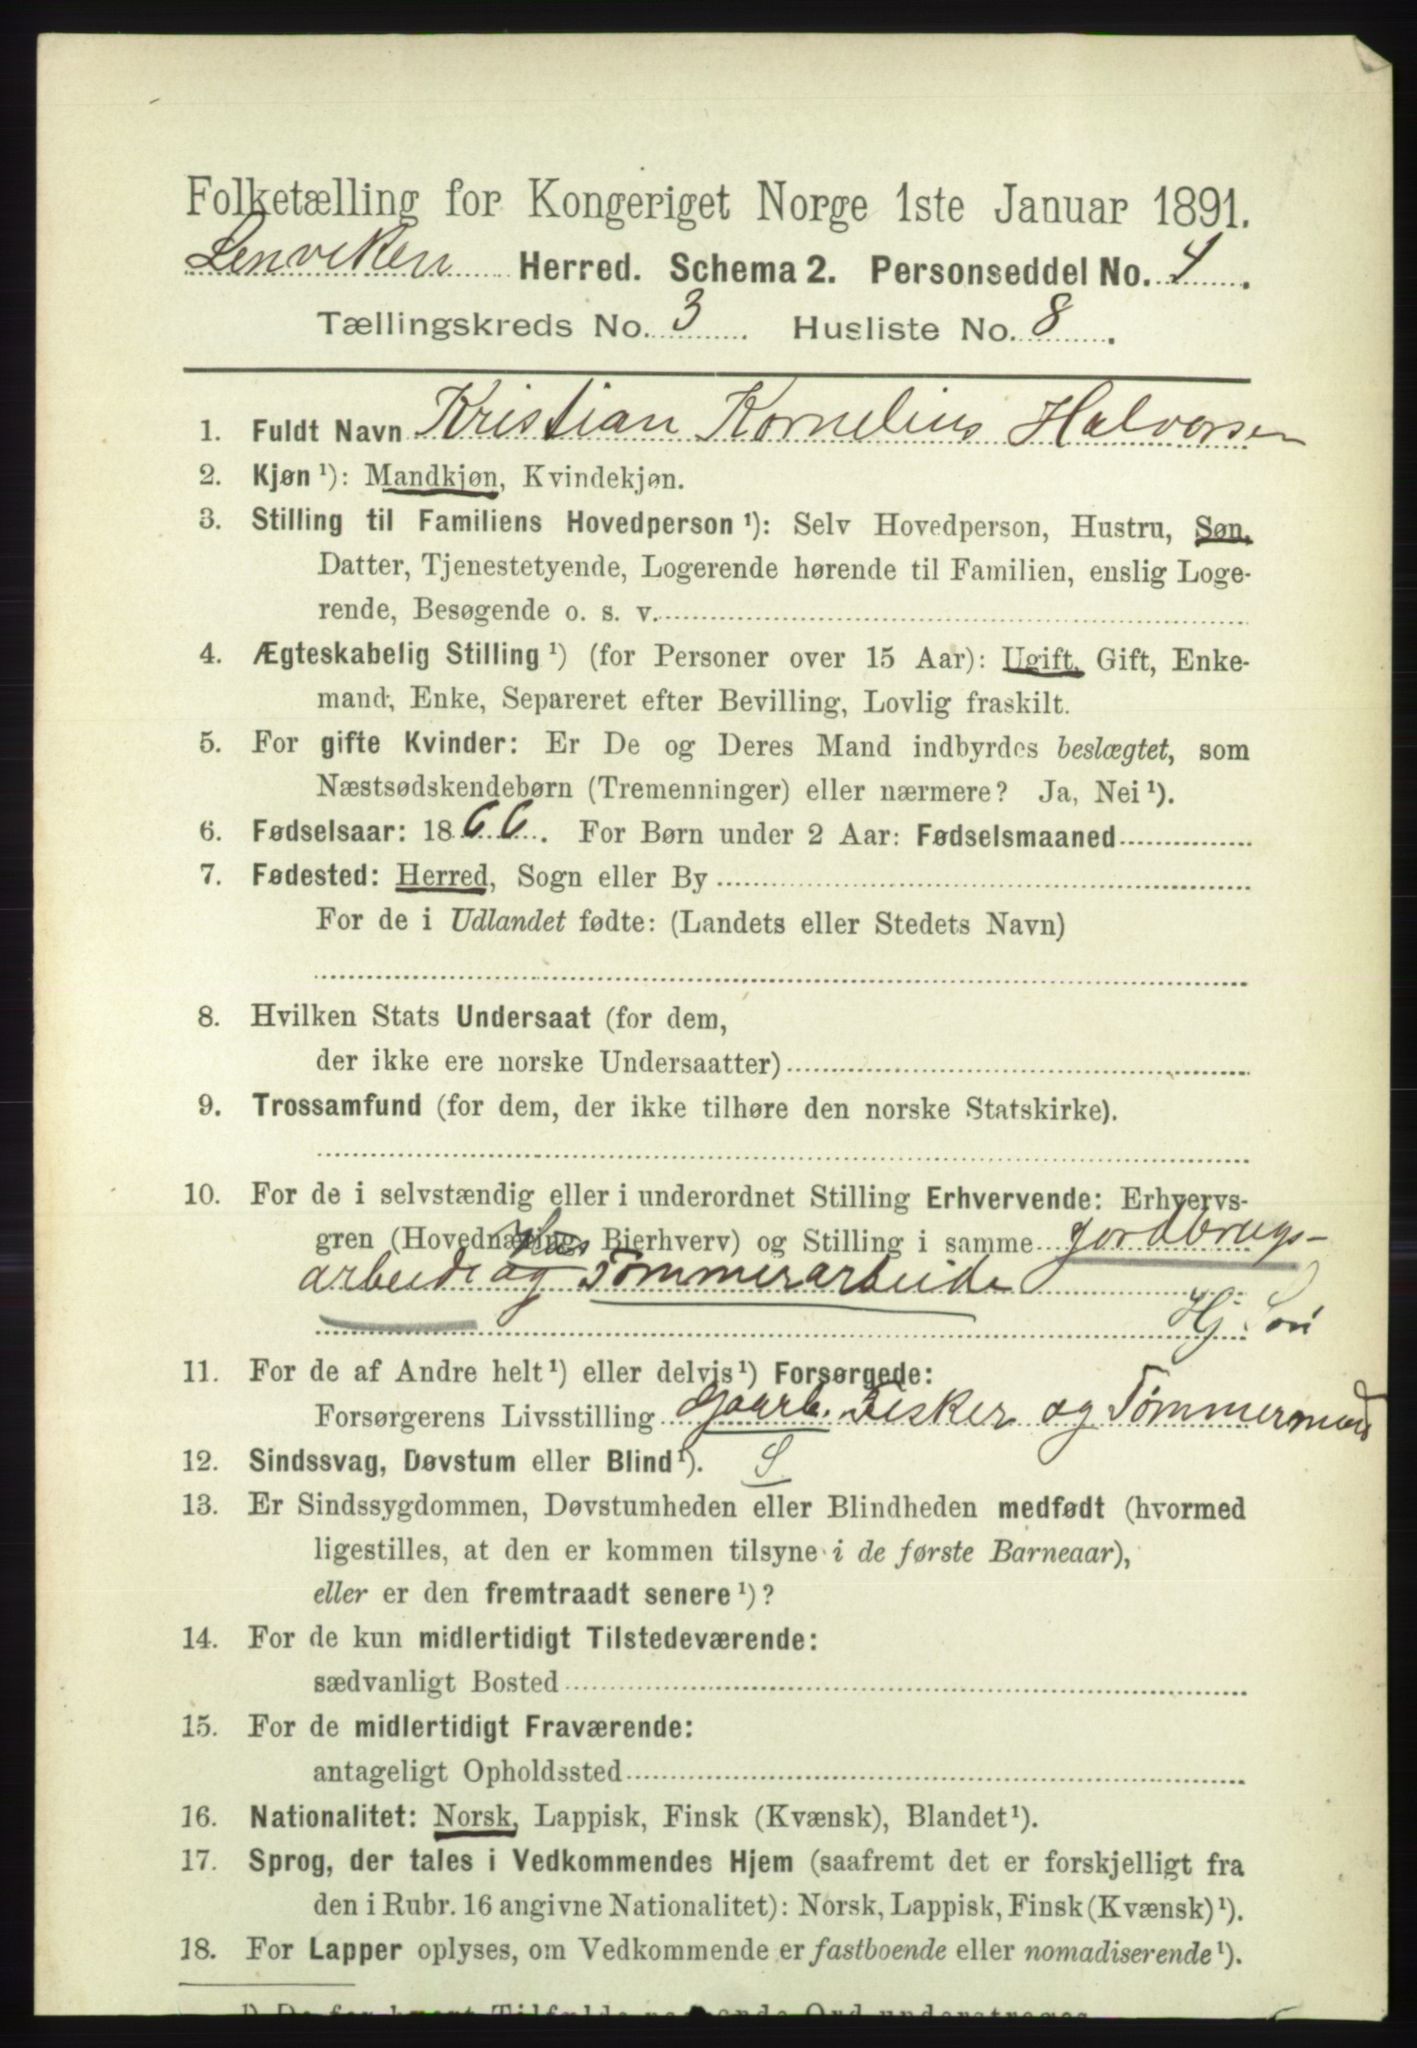 Folketælling for Kongeriget Norge 1ste Januar 1891.
Lenviken Herred. Schema 2. Personseddel No. 4.
Tællingskreds No. 3 Husliste No. 8.
1. Fuldt Navn Kristian Kornelius Halvorsen
2. Kjøn ¹): Mandkjøn, Kvindekjøn.
3. Stilling til Familiens Hovedperson ¹): Selv Hovedperson, Hustru, Søn,
Datter, Tjenestetyende, Logerende hørende til Familien, enslig Loge-
rende, Besøgende o. s. v.
4. Ægteskabelig Stilling ¹) (for Personer over 15 Aar): Ugift, Gift, Enke-
mand, Enke, Separeret efter Bevilling, Lovlig fraskilt.
5. For gifte Kvinder: Er De og Deres Mand indbyrdes beslægtet, som
Næstsødskendebørn (Tremenninger) eller nærmere? Ja, Nei ¹).
6. Fødselsaar: 1866. For Børn under 2 Aar: Fødselsmaaned
7. Fødested: Herred, Sogn eller By
For de i Udlandet fødte: (Landets eller Stedets Navn)
8. Hvilken Stats Undersaat (for dem,
der ikke ere norske Undersaatter)
9. Trossamfund (for dem, der ikke tilhøre den norske Statskirke).
10. For de i selvstændig eller i underordnet Stilling Erhvervende: Erhvervs-
gren (Hovednærings Bierhverv) og Stilling i samme jordbrugs-
arbeide og Tømmerarbeide
Hj. Søn
11. For de af Andre helt ¹) eller delvis ¹) Forsørgede:
Forsørgerens Livsstilling Gaarb. Fisker og Tømmermand
12. Sindssvag, Døvstum eller Blind ¹). S
13. Er Sindssygdommen, Døvstumheden eller Blindheden medfødt (hvormed
ligestilles, at den er kommen tilsyne i de første Barneaar),
eller er den fremtraadt senere ¹)?
14. For de kun midlertidigt Tilstedeværende:
sædvanligt Bosted
15. For de midlertidigt Fraværende:
antageligt Opholdssted
16. Nationalitet: Norsk, Lappisk, Finsk (Kvænsk), Blandet ¹).
17. Sprog, der tales i Vedkommendes Hjem (saafremt det er forskjelligt fra
den i Rubr. 16 angivne Nationalitet): Norsk, Lappisk, Finsk (Kvænsk) ¹).
18. For Lapper oplyses, om Vedkommende er fastboende eller nomadiserende ¹).